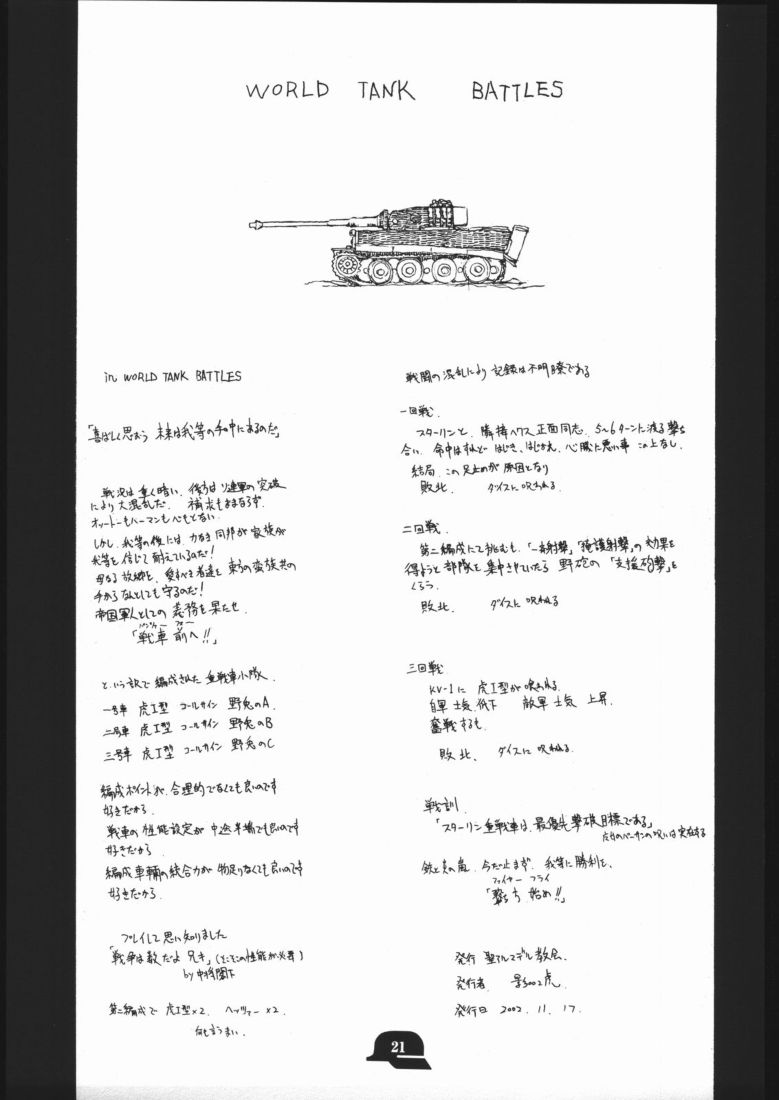 WORLD TANK BATTLES
in WORLD TANK BATTLES
「喜ばしく思おう 未来は我等の手中にあるのだ」
戦況は重く暗い、後方はソ連軍の突破
により大混乱だ。 補充もままならず
オットーもハーマンも心もとない
しかし、我等の後には 力なき同邦が家族が
我等を信じて耐えているのだ!
母なる故郷と、愛すべき者達を 東方の蛮族共の
手からなんとしても守るのだ!
帝国軍人としての 義務を果たせ
「戦車 前へ!!」
という訳で編成された 重戦車小隊
一号車 虎I型 コールサイン 野兎のA
二号車 虎I型 コールサイン 野兎のB
三号車 虎I型 コールサイン 野兎のC
編成ポイントが、合理的でなくても良いのです
好きだから
戦車の性能設定が 中途半端でも良いのです
好きだから
編成車輌の総合力が 物足りなくても良いのです
好きだから
プレイして思い知りました
「戦争は数だよ 兄キ」(そこそこの性能が必要)
by 中将閣下
第二編成で 虎I型×2、ヘッツァー×2、
何も言うまい、
戦闘の混乱により 記録は不明瞭である
一回戦、
スターリンと、 正面同志、5〜6ターンに渡る撃ち
合い、命中はすれど はじき、はじかれ、心臓に悪い事 この上なし、
結局、この足止めが 原因となり
敗北、 ダイスに呪われる
二回戦、
第二編成にて挑むも、「一斉射撃」「掩護射撃」の効果を
得ようと部隊を 集中させていたら 野砲の「支援砲撃」を
くらう、
敗北、 ダイスに呪われる
三回戦
KV-1に 虎I型が喰われる
自軍 士気 低下 敵軍 士気 上昇、
奮戦するも、
敗北、 ダイスに呪われる
戦訓
「スターリン重戦車は、最優先撃破目標である」
鉄と炎の嵐、今だ止まず、我等に勝利を、
ファイヤー フライ
「撃ち方 始め!!」
発行 聖アルマデル教会、
発行者 景3002虎
発行日 2002.11.17.
21